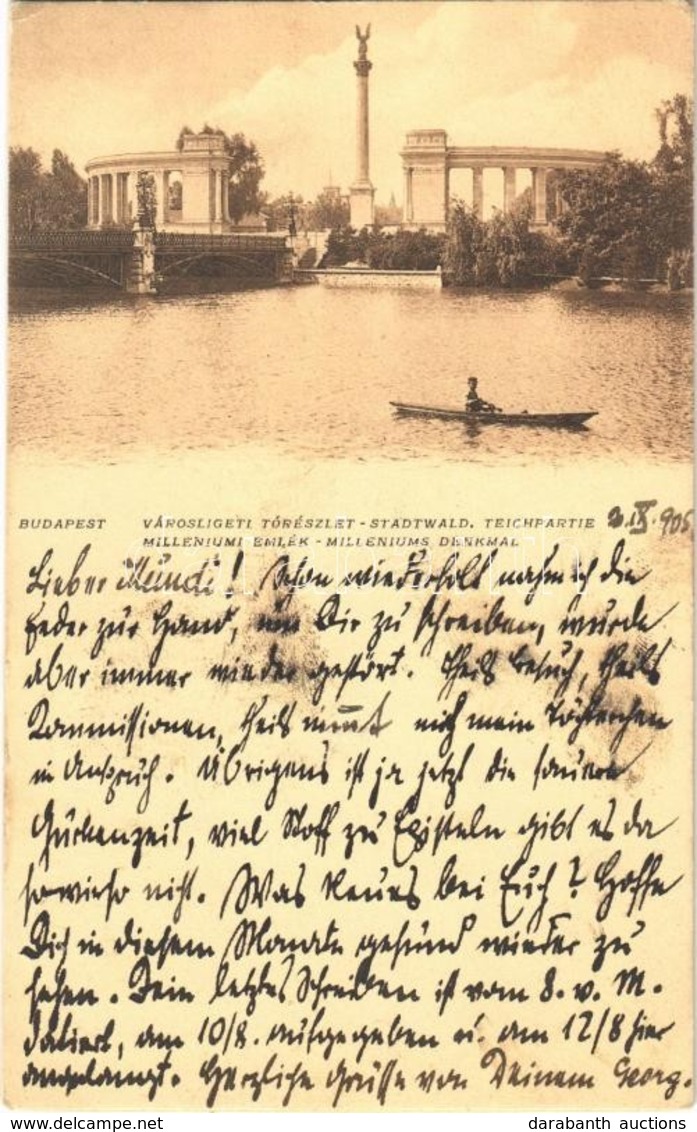 BUDAPEST VÁROSLIGETI TÓRÉSZLET - STADTWALD. TEICHPARTIE 3.IX.905
MILLENIUMI EMLÉK - MILLENIUMS DENKMAL
Lieber Mundi! Schon wiederholt nahm ich die
Feder zur Hand, um Dir zu schreiben, wurde
aber immer wieder gestört. Theils Besuch, theils
Kommissionen, theils nimmt mich mein Töchterchen
in Anspruch. Übrigens ist ja jetzt die sauere
Gurkenzeit, viel Stoff zu Episteln gibt es da
sowieso nicht. Was Neues bei Euch? Hoffe
Dich in diesem Monate gesund wieder zu
sehen. Dein letztes Schreiben ist vom 8. v. M.
datiert, am 10/8. aufgegeben u. am 12/8 hier
angelangt. Herzliche Grüsse von Deinem Georg.
darabanth.com
darabanth auctions